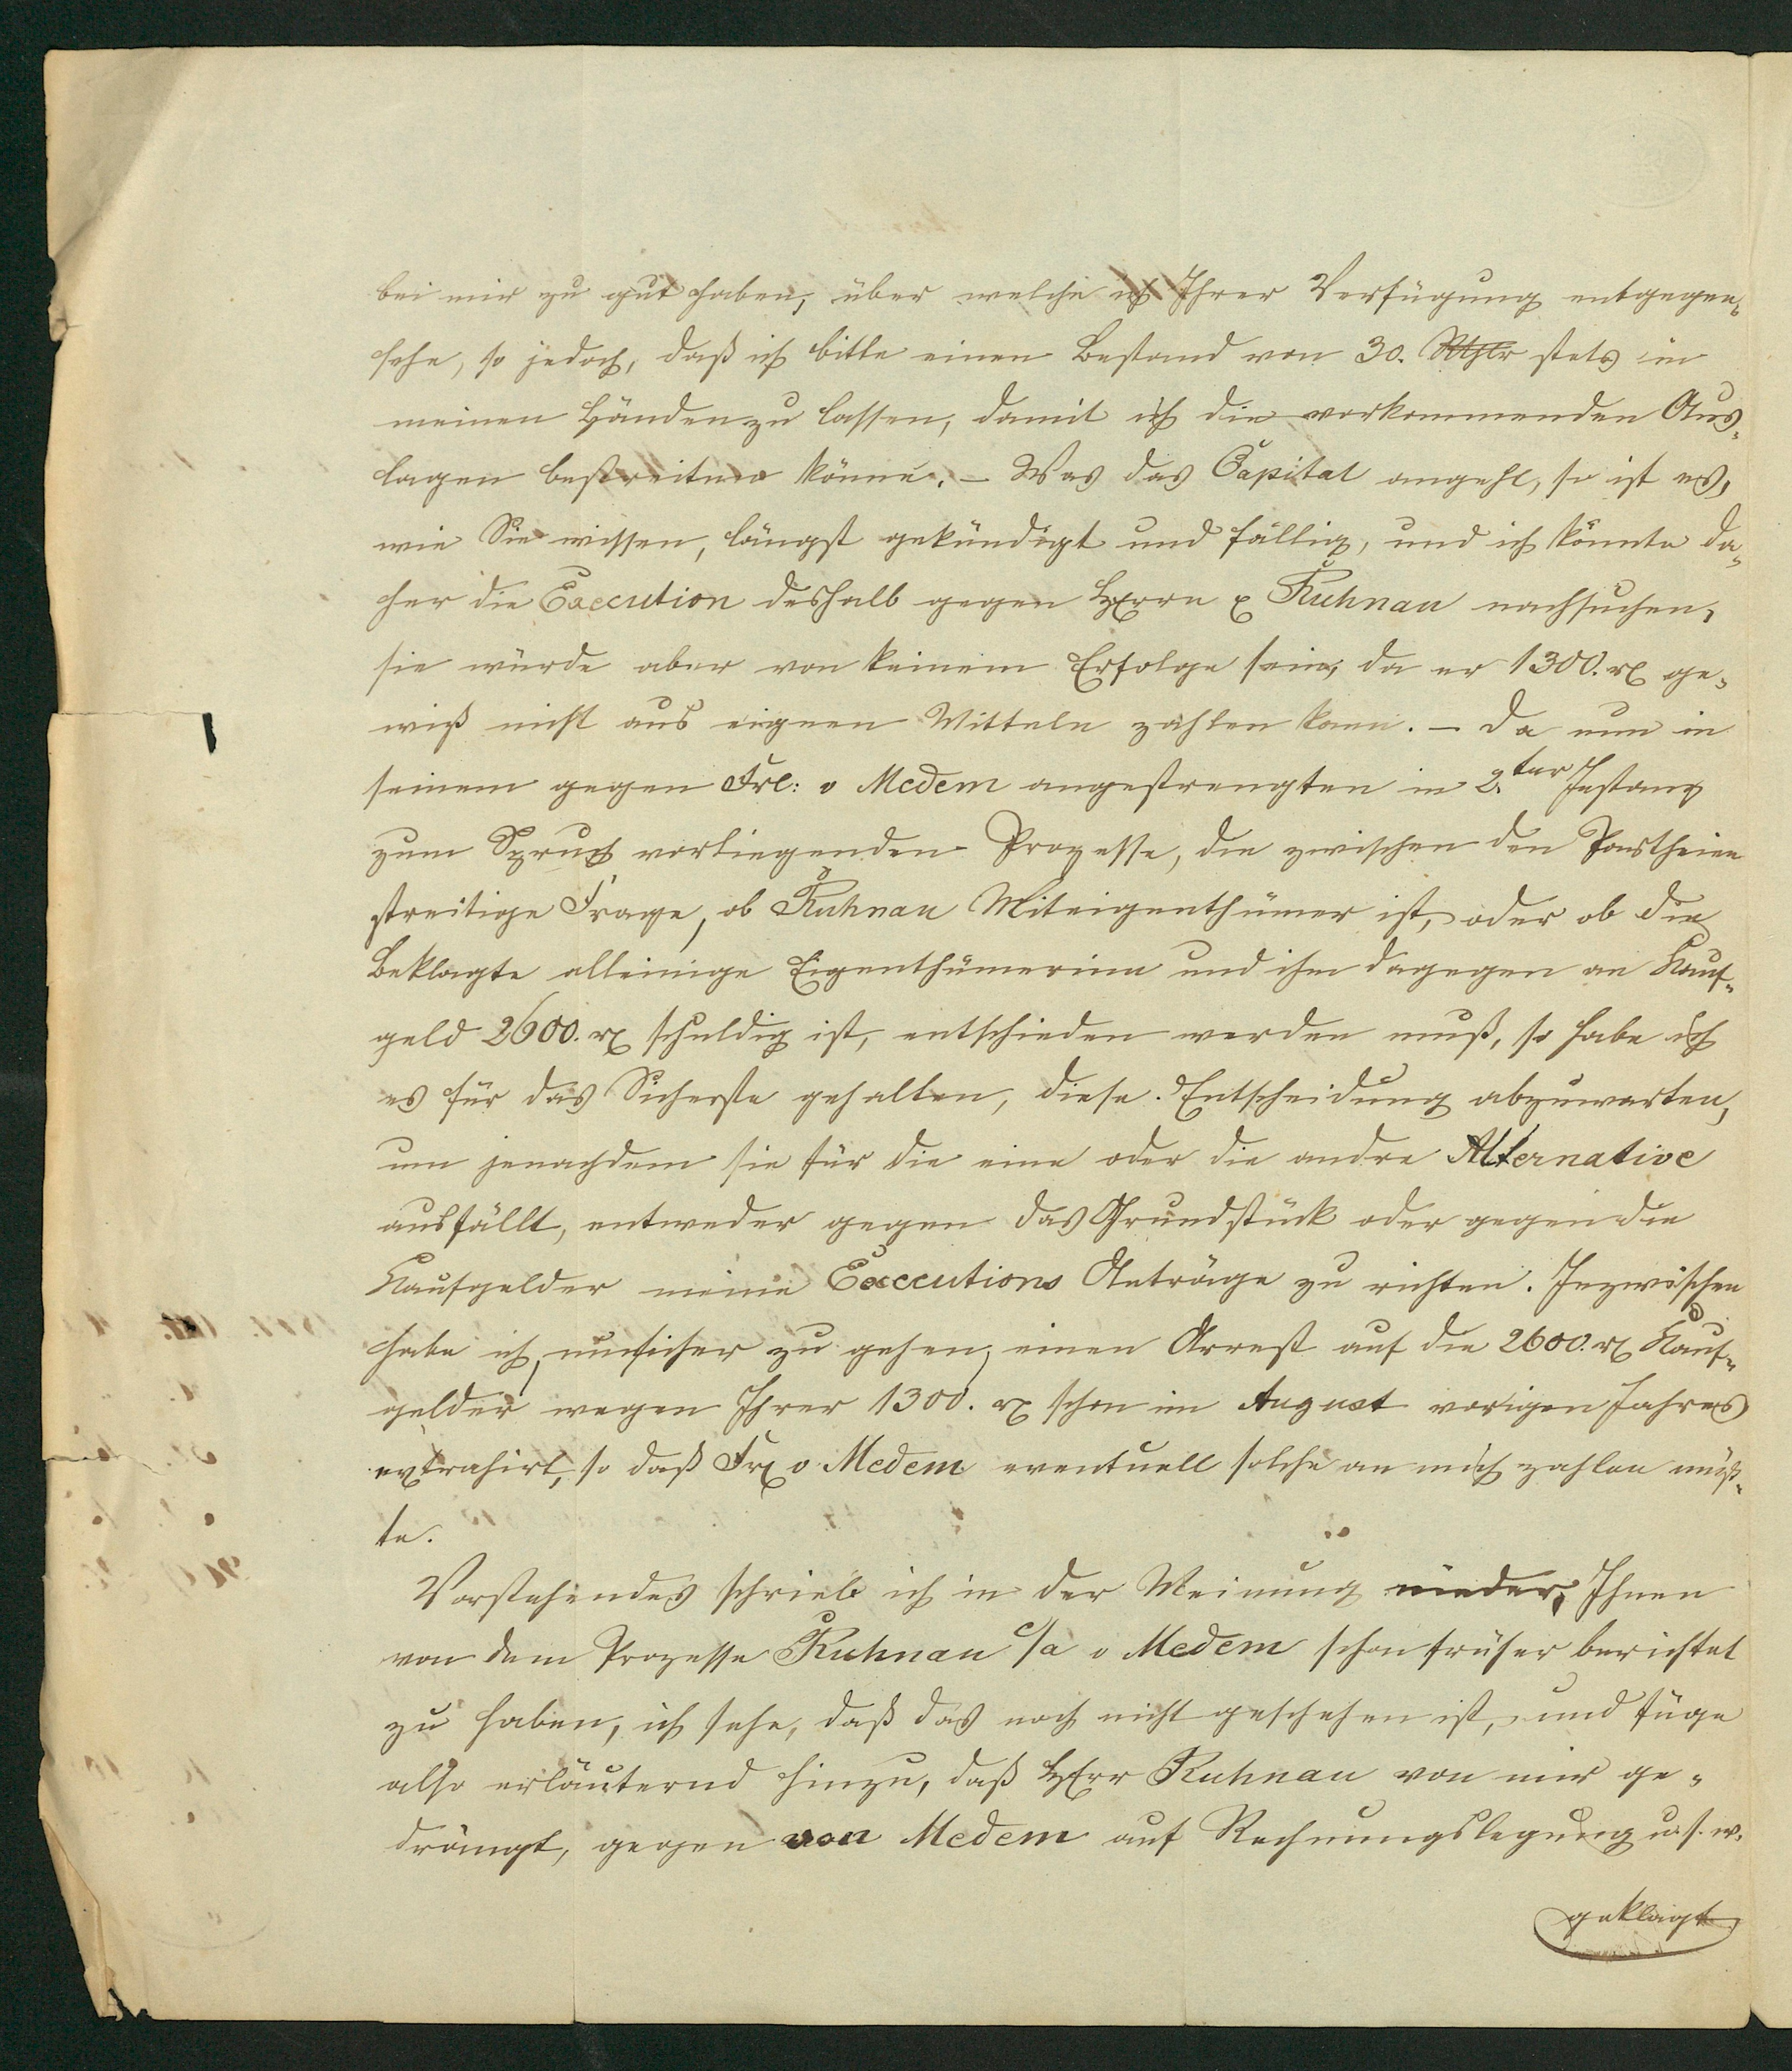 bei mir zu gut haben, über welche ich Ihrer Verfügung entgegen-
sehe, so jedoch, daß ich bitte einen Bestand von 30. Rthlr stets in
meinen Händen zu lassen, damit ich die vorkommenden Aus-
lagen bestreiten könne. – Was das Capital angeht, so ist es,
wie Sie wissen, längst gekündigt und fällig, und ich könnte da-
her die Execution deshalb gegen Herrn Kuhnau nachsuchen,
sie würde aber von keinem Erfolge sein, da er 1300. rℓ ge-
wiß nicht aus eignen Mitteln zahlen kann. – Da nun in
seinem gegen Frl: v Medem angestrengten in 2.ter Instanz
zum Spruch vorliegenden Prozesse, die zwischen den Partheien
streitige Frage, ob Kuhnau Miteigenthümer ist, oder ob die
Beklagte alleinige Eigenthümerinn und ihm dagegen an Kauf-
geld 2600. rℓ schuldig ist, entschieden werden muß, so habe ich
es für das Sicherste gehalten, diese Entscheidung abzuwarten,
um jenachdem sie für die eine oder die andre Alternative
ausfällt, entweder gegen das Grundstück oder gegen die
Kaufgelder meine Executions Anträge zu richten. Inzwischen
habe ich, um sicher zu gehen, einen Arrest auf die 2600. rℓ Kauf-
gelder wegen Ihrer 1300. rℓ schon im August vorigen Jahres
extrahirt, so daß Frl v Medem eventuell solche an mich zahlen müß-
te.
Vorstehendes schrieb ich in der Meinung nieder, Ihnen
von dem Prozesse Kuhnau c/a v Medem schon früher berichtet
zu haben, ich sehe, daß das noch nicht geschehen ist, und füge
also erläuternd hinzu, daß Herr Kuhnau von mir ge-
drängt, gegen von Medem auf Rechnungslegung u. s. w.
geklagt